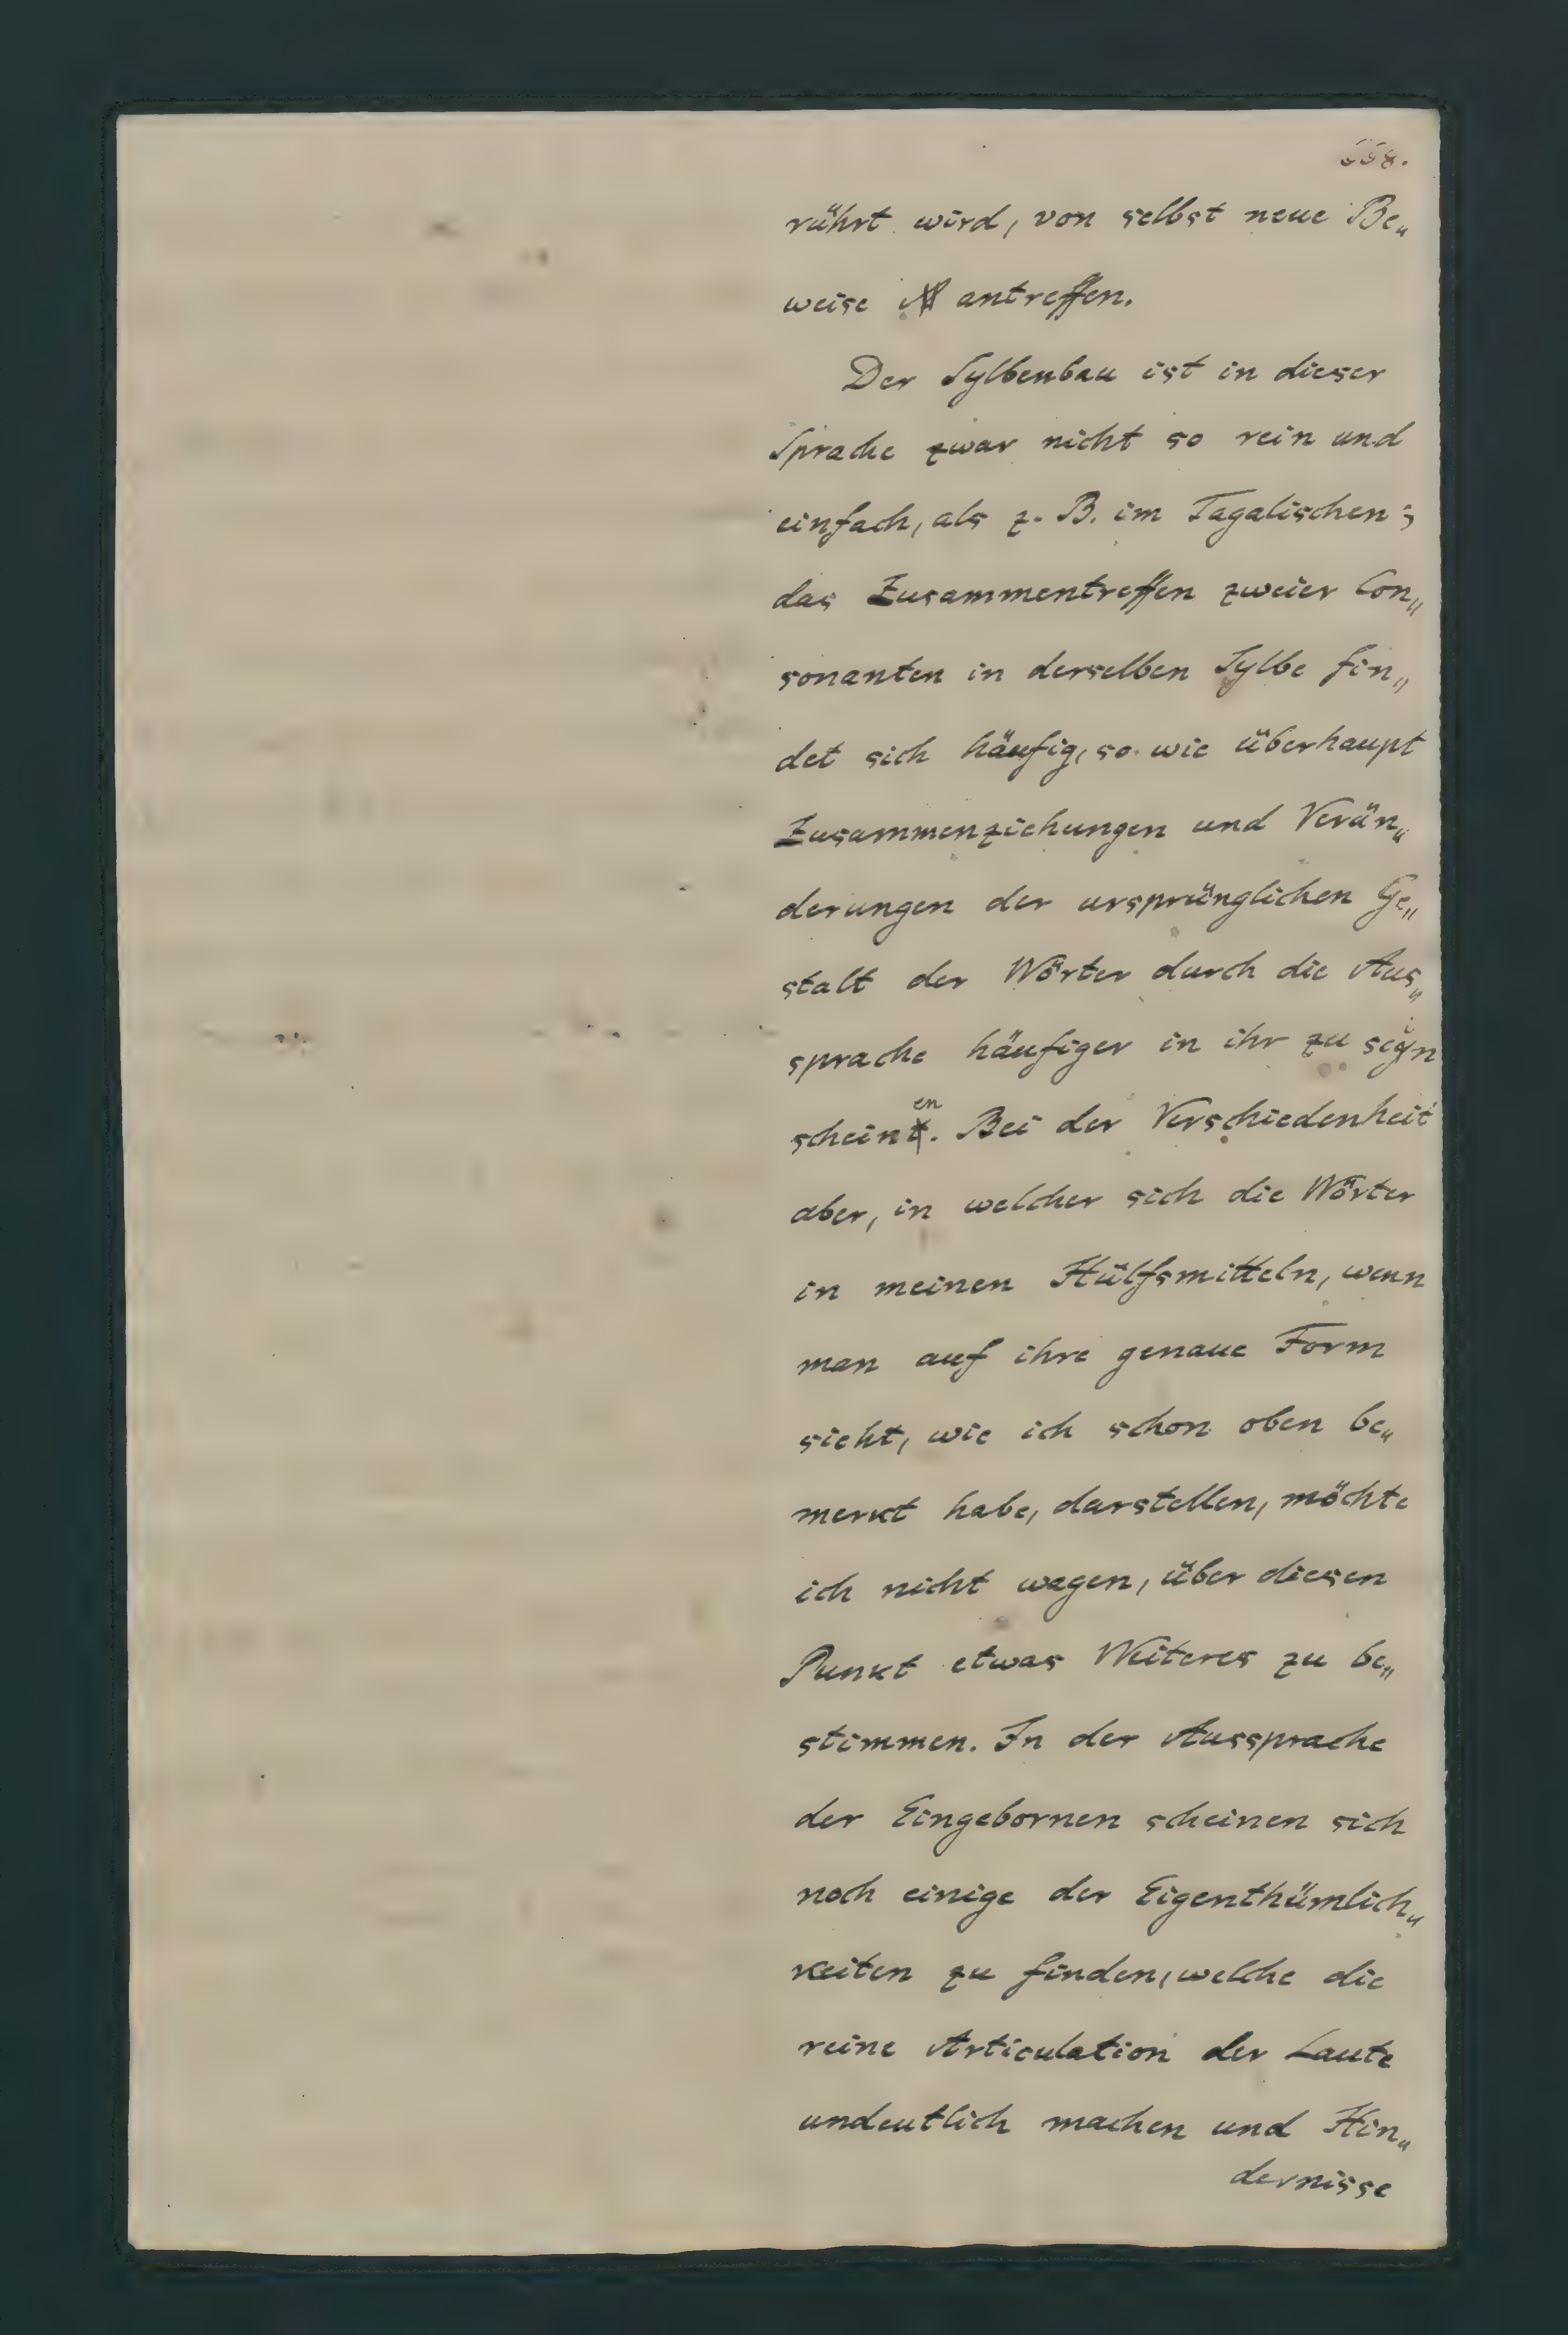 558.
rührt wird, von selbst neue Be„
weise antreffen.
Der Sylbenbau ist in dieser
Sprache zwar nicht so rein und
einfach, als z. B. im Tagalischen;
das Zusammentreffen zweier Con„
sonanten in derselben Sylbe fin„
det sich häufig, so wie überhaupt
Zusammenziehungen und Verän„
derungen der ursprünglichen Ge„
stalt der Wörter durch die Aus„
sprache häufiger in ihr zu seyn
scheinen. Bei der Verschiedenheit
aber, in welcher sich die Wörter
in meinen Hülfsmitteln, wenn
man auf ihre genaue Form
sieht, wie ich schon oben be„
merkt habe, darstellen, möchte
ich nicht wagen, über diesen
Punkt etwas Weiteres zu be„
stimmen. In der Aussprache
der Eingebornen scheinen sich
noch einige der Eigenthümlich„
keiten zu finden, welche die
reine Articulation der Laute
undeutlich machen und Hin„
dernisse